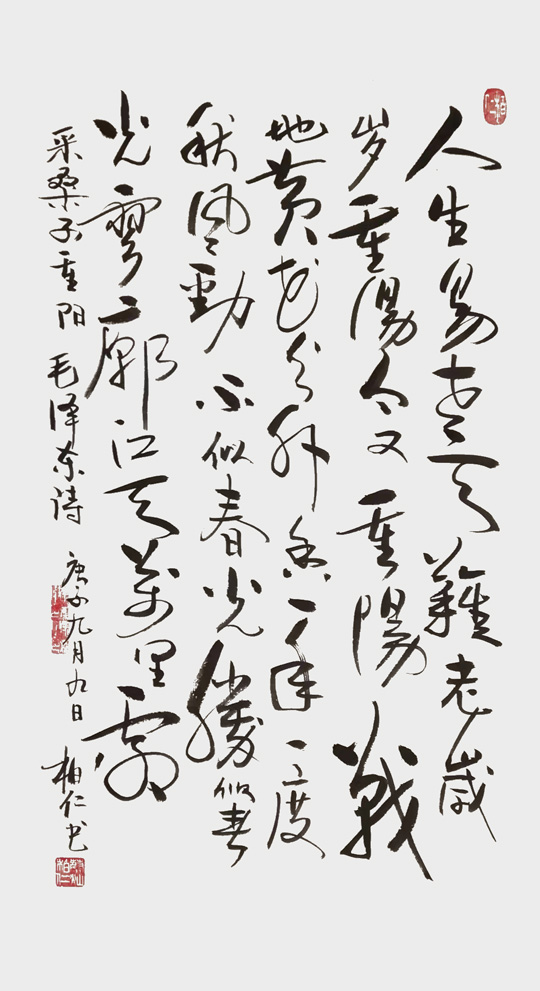 人生易老天難老歲
岁重陽今又重陽戰
地黄花分外香一年一度
秋風勁不似春光勝似春
光寥廓江天萬里霜
采桑子重阳 毛泽东诗 庚子九月九日 柏仁书